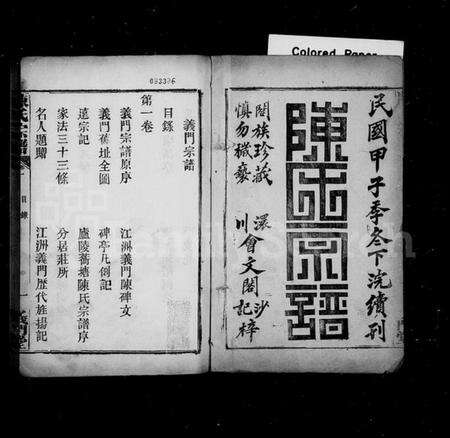 Colored Paper
民國甲子季冬下浣續刊
陳氏宗譜
闔族珍藏
慎勿褻
澴川會文閣沙記梓
093396
義門宗譜
目錄
第一卷
義門宗譜原序
江洲義門陳碑文
義門舊址全圖
碑亭凡例記
遠宗記
廬陵蕎塘陳氏宗譜序
家法三十三條
分居莊所
名人題贈
江洲義門歷代旌揚記
目錄
一